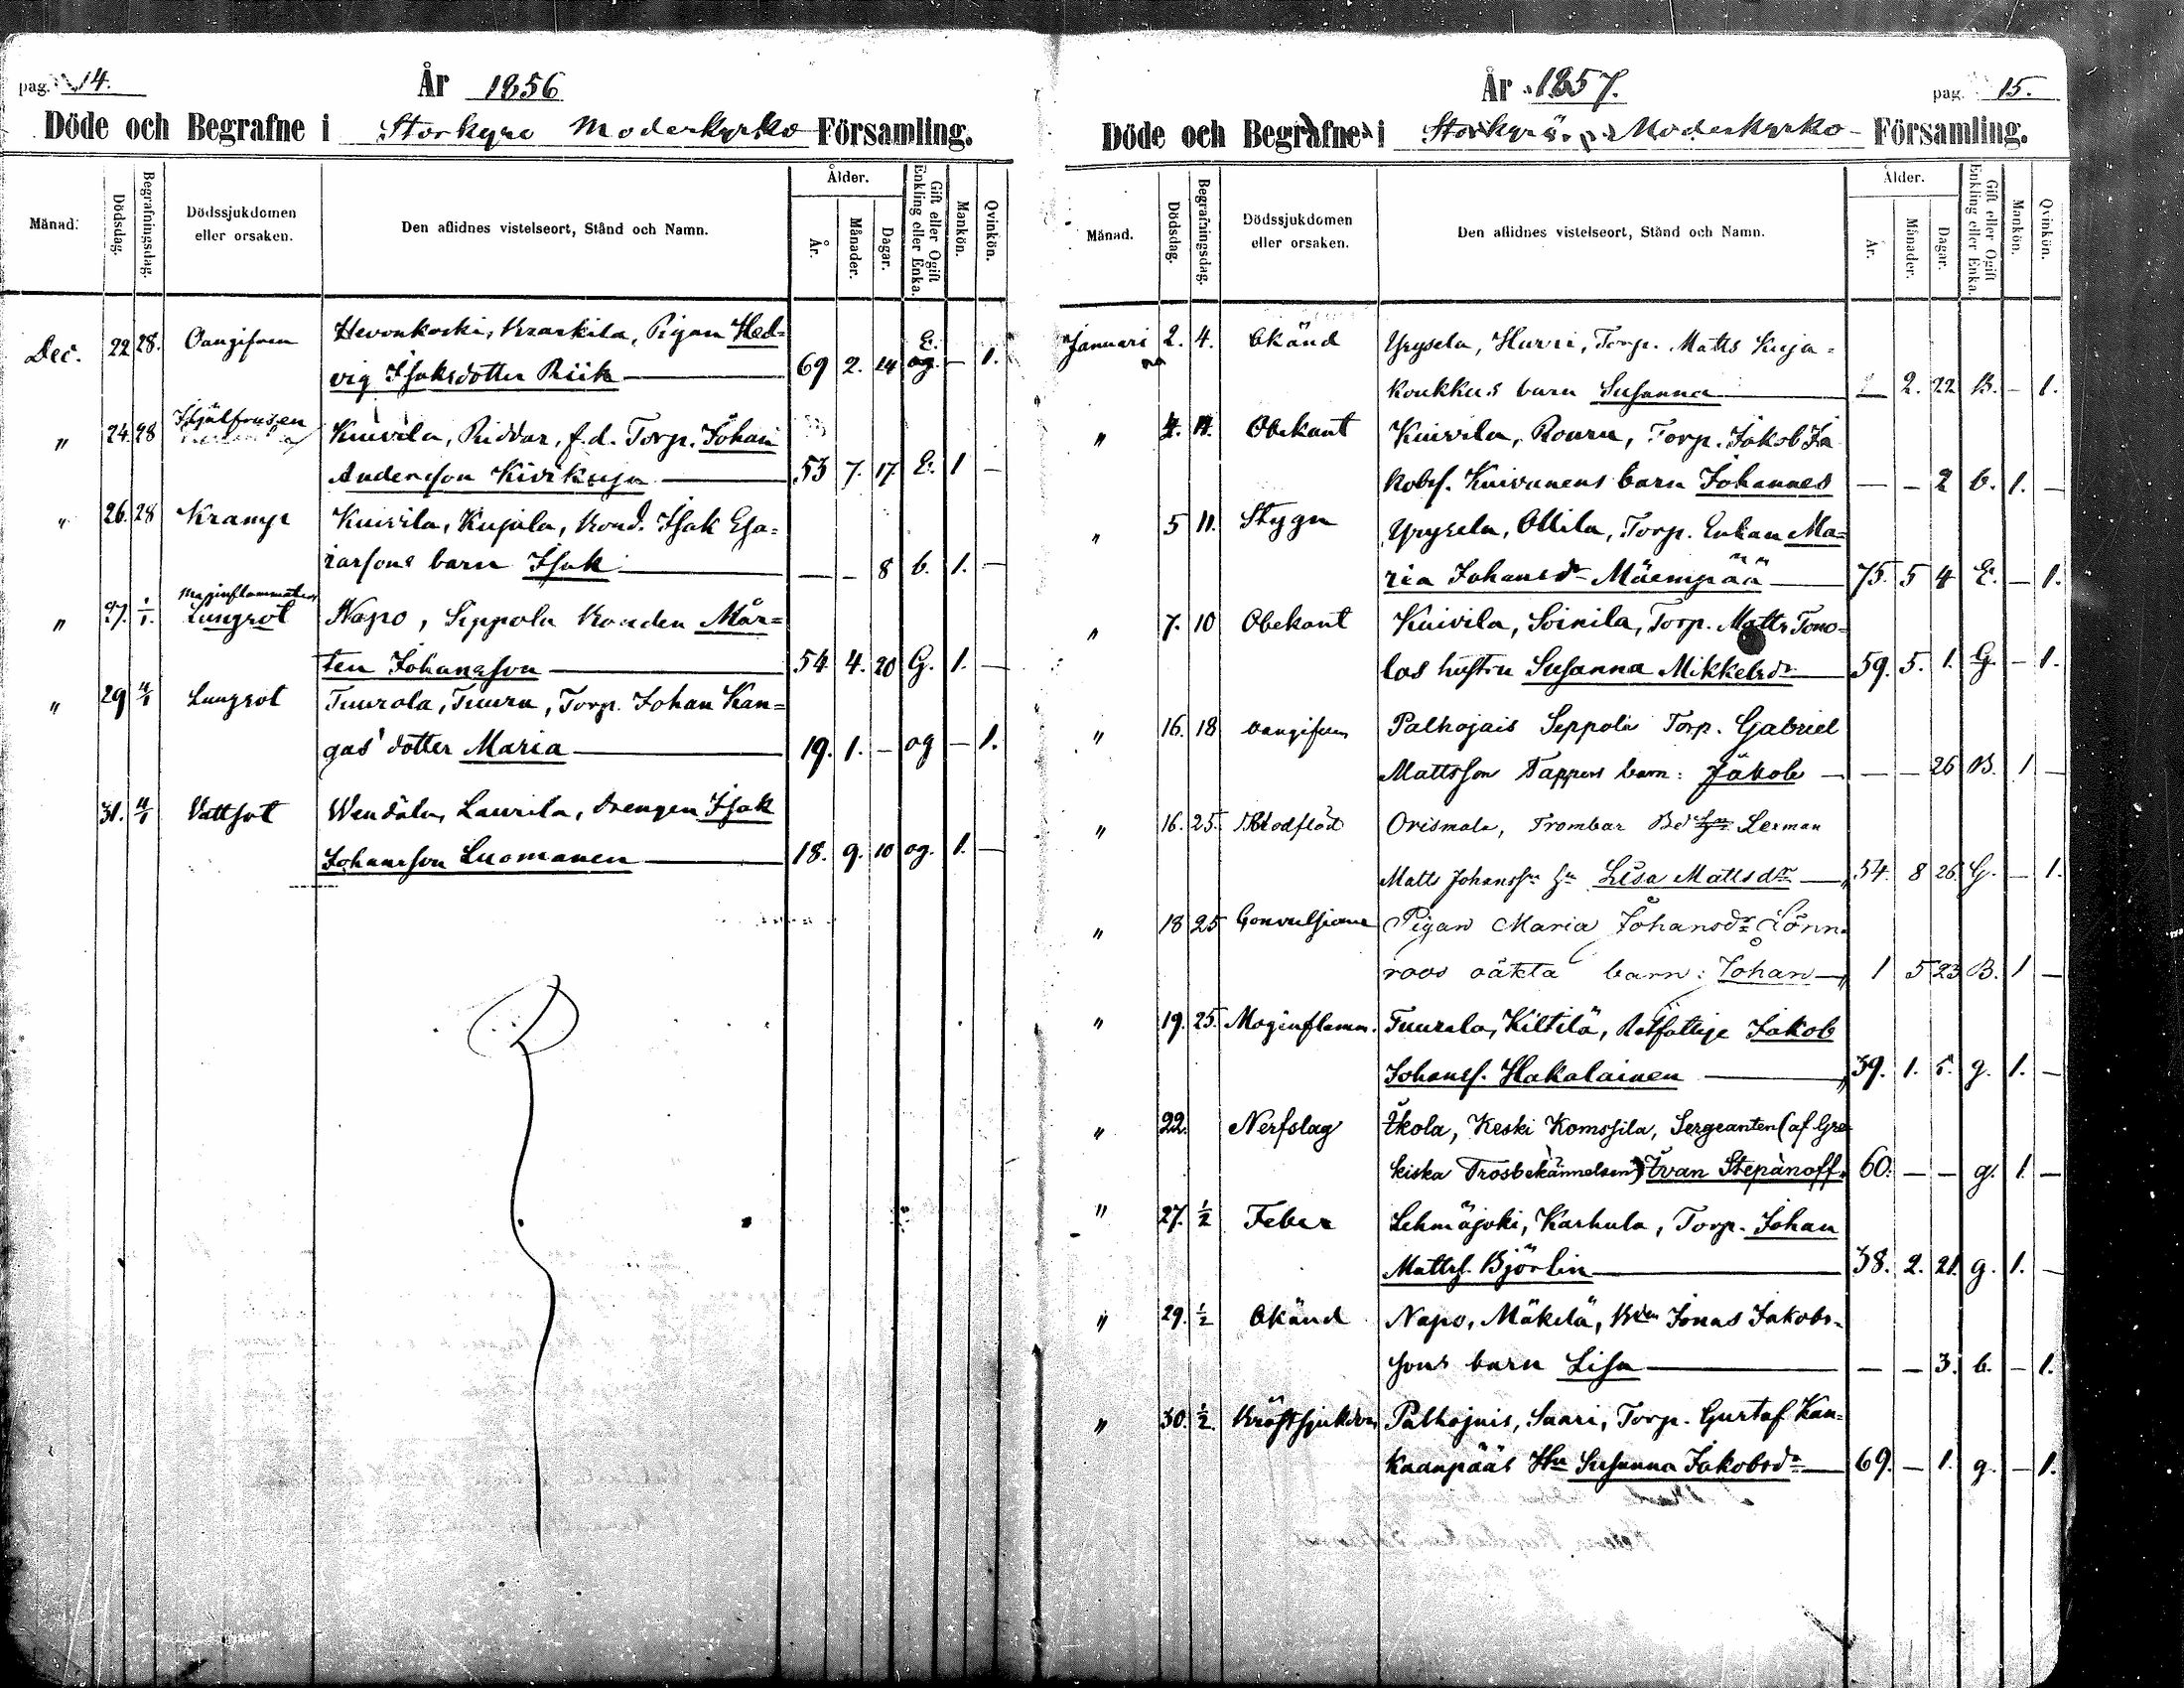 pag. 14.
År 1856
Döde och Begrafne i Storkyro Moderkyrko Församling.
Månad.
Dödsdag.
Begrafningsdag.
Dödssjukdomen eller orsaken.
Den aflidnes vistelseort, Stånd och Namn.
Ålder.
År.
Månader.
Dagar.
Gift eller Ogift Enkling eller Enka.
Mankön.
Qvinkön.
Dec. 22 28. Oangifven Hevonkoski, Knarkila, Pigan Hed=
vig Isaksdotter Riik 69 2. 14 E. og — 1.
" 24. 28 Ihjälfrusen Kuivila, Riddar, f.d. Torp. Johan
Andersson Kivikuja 53 7. 17 E. 1 —
" 26. 28 Kramp Kuivila, Kujala, Bond. Isak Esa=
iarsons barn Isak — — 8 b. 1. —
" 27. 1/1. Maginflammation
Lungsot Napo, Seppola Bonden Mår=
ten Johansson 54 4. 20 G. 1. —
" 29 4/1 Lungsot Tuurala, Tuuru, Torp. Johan Kan=
gas' dotter Maria 19. 1. — og — 1.
31. 4/1 Vattsot Wendälu, Laurila, Drengen Isak
Johansson Luomanen 18. 9. 10 og. 1. —
År 1857.
pag. 15.
Döde och Begrafne i Storkyro Moderkyrko Församling.
Månad.
Dödsdag.
Begrafningsdag.
Dödssjukdomen eller orsaken.
Den aflidnes vistelseort, Stånd och Namn.
Ålder.
År.
Månader.
Dagar.
Gift eller Ogift Enkling eller Enka.
Mankön.
Qvinkön.
Januari 2. 4. Okänd Yrysela, Hurri, Torp. Matts Kuja=
koukkus barn Susanna — 2. 22 B. — 1.
" 4. 11. Obekant Kuivila, Rouru, Torp. Jakob Ja
kobs. Kuivanens barn Johannes — — 2 b. 1. —
" 5 11. Stygn Yrysela, Ollila, Torp. Enkan Ma=
ria Johansdr Mäenpää 75. 5 4 E. — 1.
" 7. 10 Obekant Kuivila, Soinila, Torp. Matts Tono=
las hustru Susanna Mikkelsdr 59. 5. 1. G. — 1.
" 16. 18 oangifven Palhojais Seppola Torp. Gabriel
Mattsson Tappers barn: Jakob — — 26 B. 1 —
" 16. 25. Blodflöd Orismala, Trombar Bd Lexman
Matts Johanssn hu Lisa Mattsdr 54. 8 26 G. — 1.
" 18 25 Convulsioner Pigan Maria Johansdr Lönn
roos oäkta barn: Johan 1 5 23 B. 1 —
" 19. 25. Maginflamm. Tuurala, Kiltilä, Rotfattige Jakob
Johanss. Hakalainen 39. 1. 5. g. 1. —
" 22. Nerfslag Ikola, Keski Komssila, Sergeanten (af Gre
kiska Trosbekännelsen) Ivan Stepanoff. 60. — — g. 1. —
" 27. 1/2 Feber Lehmäjoki, Karhula, Torp. Johan
Mattss. Björlin 38. 2. 21. g. 1. —
" 29. 1/2 Okänd Napo, Mäkelä, Bden Jonas Jakobs-
sons barn Lisa — — 3. b. — 1.
" 30. 1/2. Bröstsjukdom Palhojais, Saari, Torp. Gustaf Kan=
kaanpääs Hu Susanna Jakobsdr 69. — 1. g. — 1.